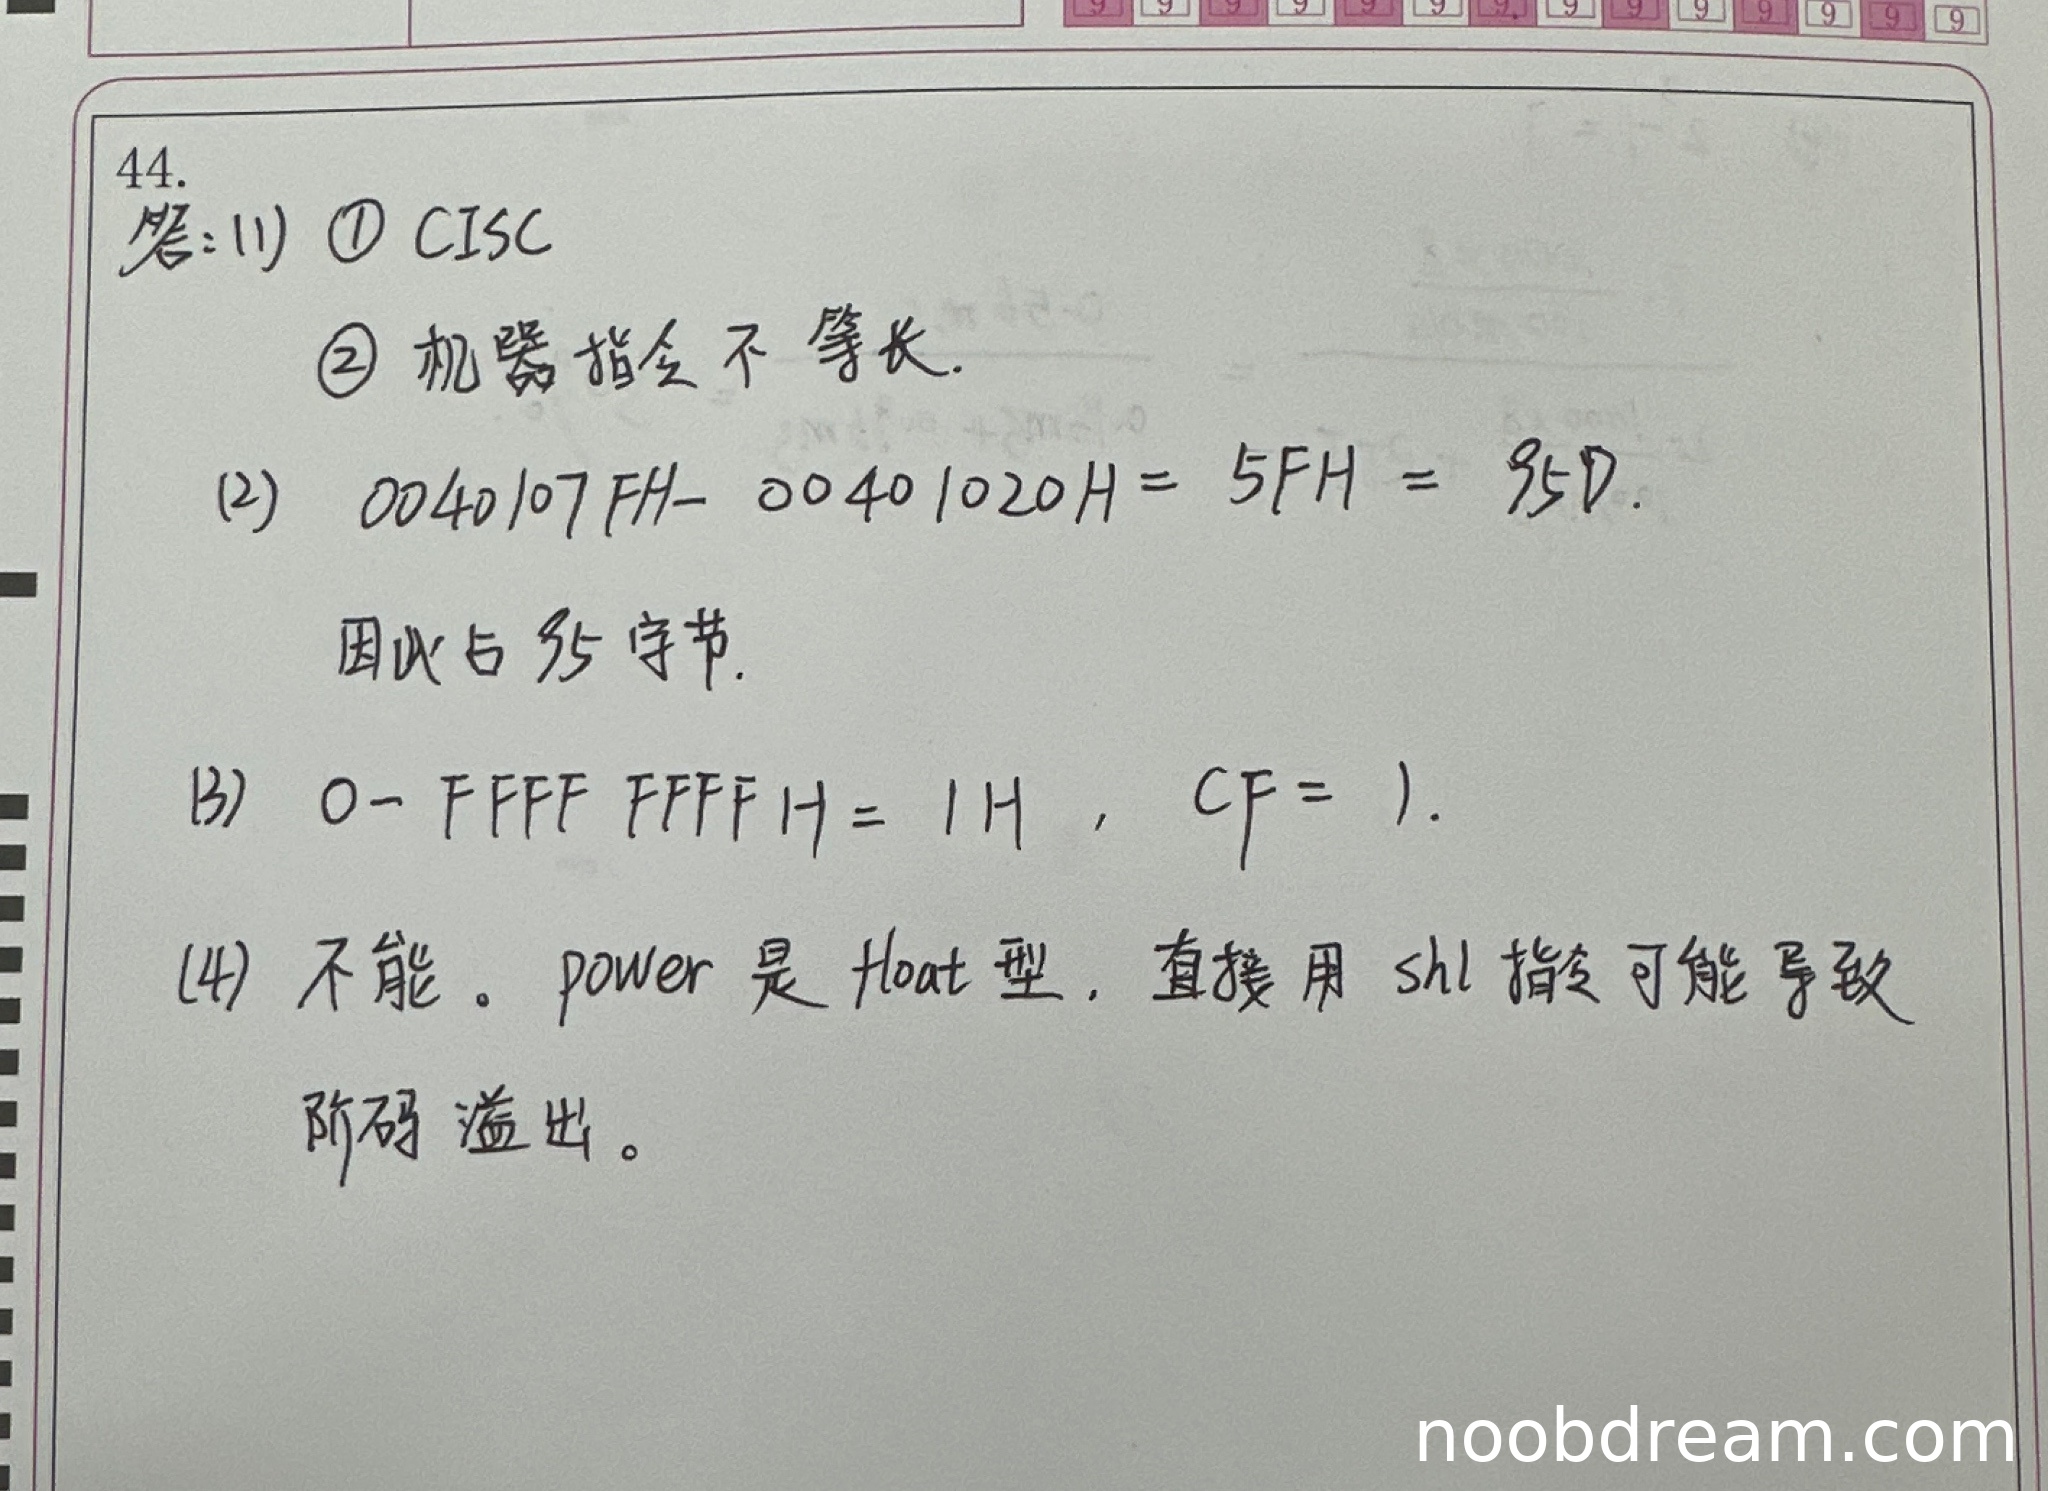 9 9 9 9 9 9 9 9 9 9 9 9 9 9
44.
答:(1) ① CISC
② 机器指令不等长.
(2) 0040107FH- 00401020H = 5FH = 95D.
因此占95字节.
(3) 0- FFFF FFFFH = 1H , CF = 1.
(4) 不能。power 是 float 型. 直接用 shl 指令可能导致
阶码溢出。
noobdream.com